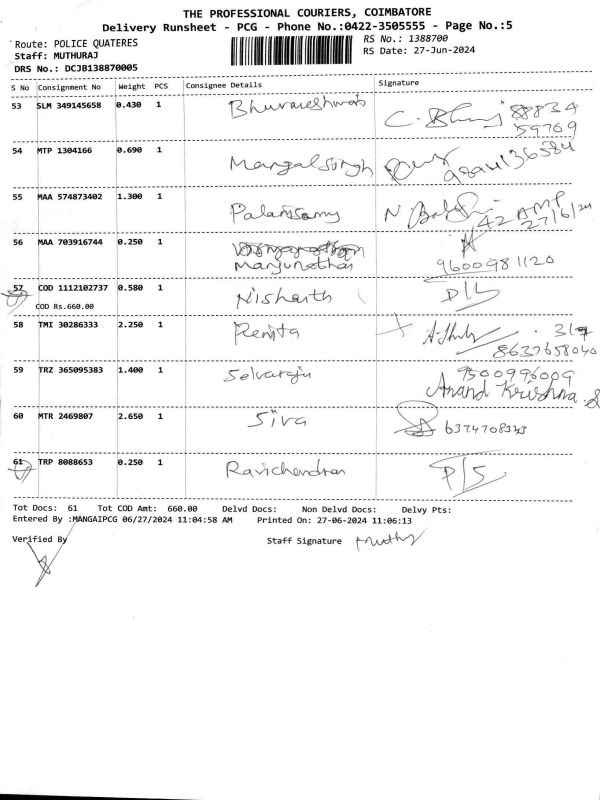 THE PROFESSIONAL COURIERS, COIMBATORE
Delivery Runsheet - PCG - Phone No.:0422-3505555 - Page No.:5
Route: POLICE QUATERES RS No.: 1388700
Staff: MUTHURAJ RS Date: 27-Jun-2024
DRS No.: DCJB138870005
S No Consignment No Weight PCS Consignee Details Signature
53 SLM 349145658 0.430 1 Bhuvaneshwari 88834
59769
54 MTP 1304166 0.690 1 Mangalsingh
55 MAA 574873402 1.300 1 Palanisamy N
42 AMP
27/6/24
56 MAA 703916744 0.250 1
Manjunathan 9600981120
57 COD 1112102737 0.580 1 Nishanth D/L
COD Rs.660.00
58 TMI 30286333 2.250 1 Renita 317
8637658040
59 TRZ 365095383 1.400 1 Selvaraju 9500996009
Anand Krishna.S
60 MTR 2469807 2.650 1 Siva 6374708343
61 TRP 8088653 0.250 1 Ravichandran P/S
Tot Docs: 61 Tot COD Amt: 660.00 Delvd Docs: Non Delvd Docs: Delvy Pts:
Entered By :MANGAIPCG 06/27/2024 11:04:58 AM Printed On: 27-06-2024 11:06:13
Verified By Staff Signature Muthu